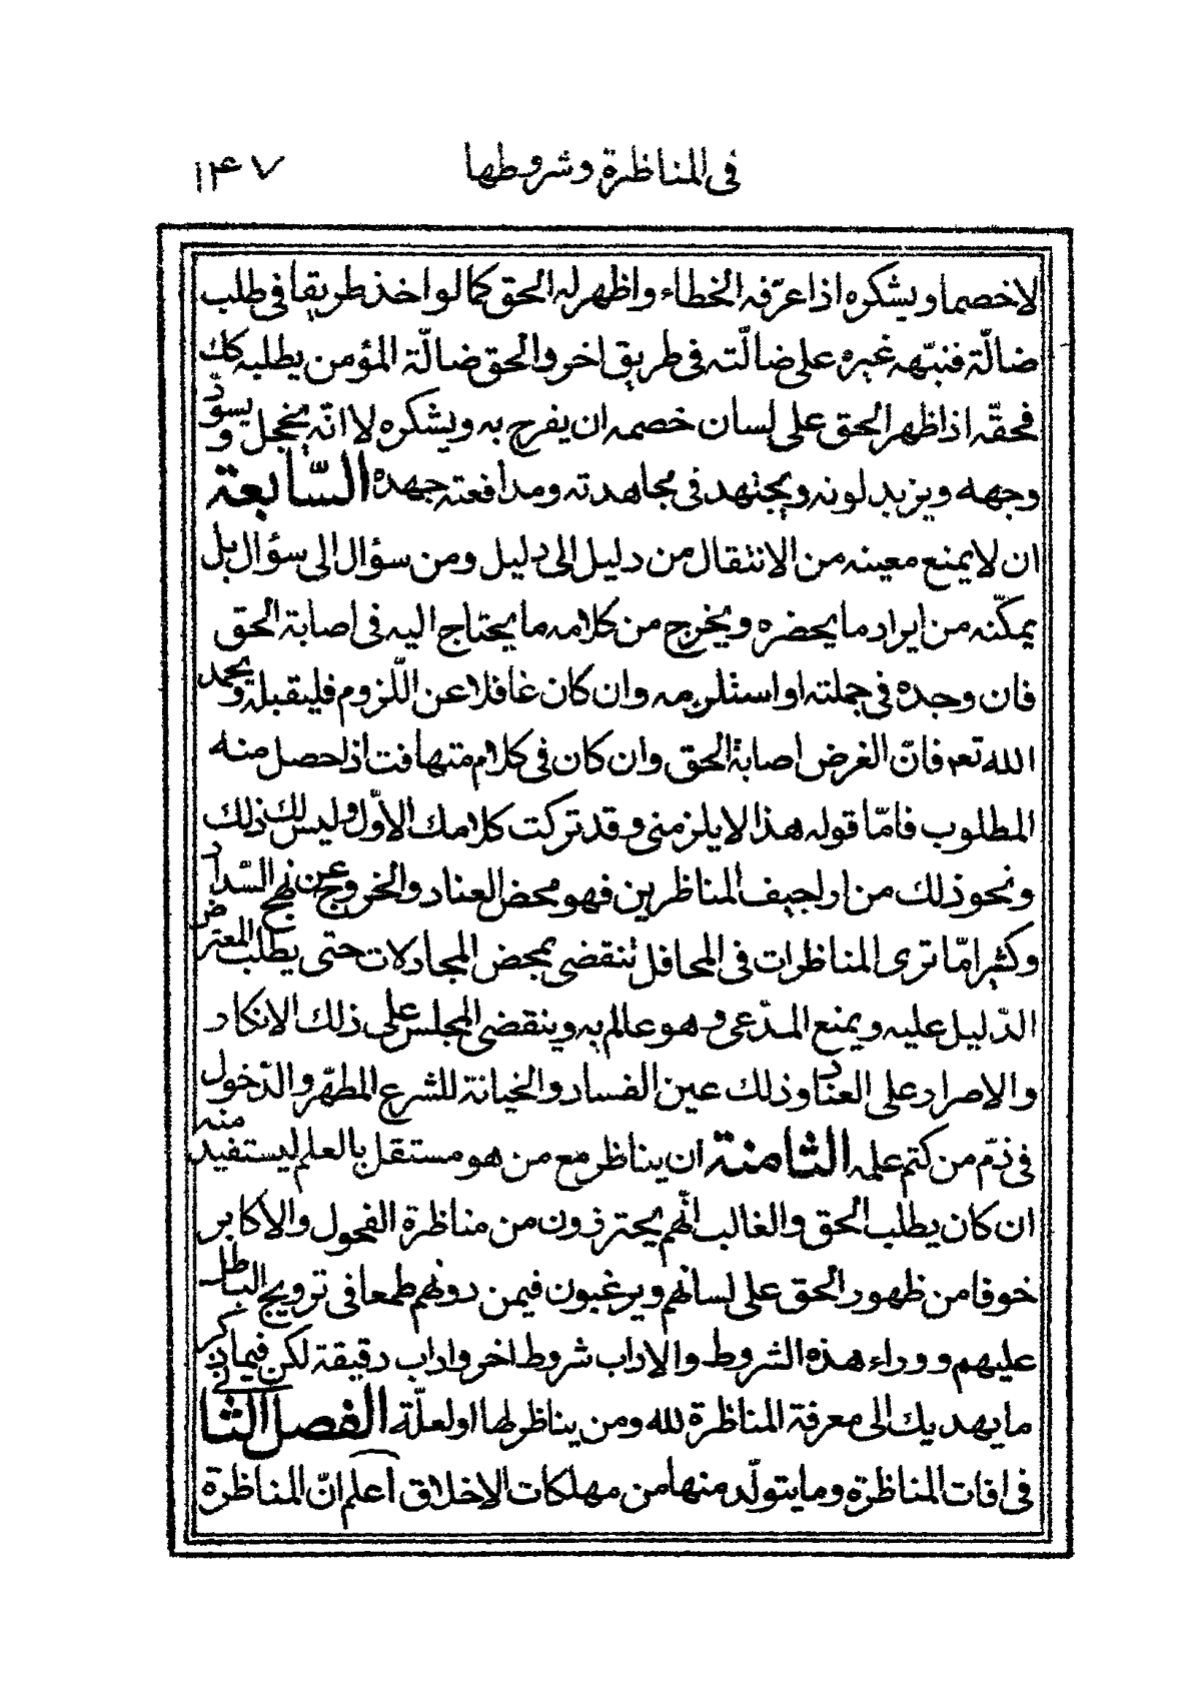 في المناظرة وشروطها ١٤٧
لا خصما ويشكره اذا عرّفه الخطاء واظهر له الحق كما لو اخذ طريقا في طلب
ضالّة فنبّهه غيره على ضالّته في طريق اخر والحق ضالّة المؤمن يطلبه كك
فحقّه اذا ظهر الحق على لسان خصمه ان يفرح به ويشكره لا انّه يخجل ويسودّ
وجهه ويزيد لونه ويجتهد في مجاهدته ومدافعته جهده السّابعة
ان لا يمنع معينه من الانتقال من دليل الى دليل ومن سؤال الى سؤال بل
يمكّنه من ايراد ما يحضره ويخرج من كلامه ما يحتاج اليه في اصابة الحق
فان وجده في جملته او استلزمه وان كان غافلا عن اللّزوم فليقبله ويحمد
الله تعم فانّ الغرض اصابة الحق وان كان في كلام متهافت اذا حصل منه
المطلوب فامّا قوله هذا لا يلزمني وقد تركت كلامك الاوّل وليس لك ذلك
ونحو ذلك من اراجيف المناظرين فهو محض العناد والخروج عن نهج السّداد
وكثيرا مّا ترى المناظرات في المحافل تنقضي بمحض المجادلات حتى يطلب المعترض
الدّليل عليه ويمنع المدّعى وهو عالم به وينقضي المجلس على ذلك الانكار
والاصرار على العناد وذلك عين الفساد والخيانة للشرع المطهّر والدّخول
في ذمّ من كتم علمه الثامنة ان يناظر مع من هو مستقل بالعلم ليستفيد منه
ان كان يطلب الحق والغالب انّهم يحترزون من مناظرة الفحول والاكابر
خوفا من ظهور الحق على لسانهم ويرغبون فيمن دونهم طمعا في ترويج الباطل
عليهم ووراء هذه الشروط والاداب شروط اخر واداب دقيقة لكن فيما ذكر
ما يهديك الى معرفة المناظرة لله ومن يناظر لها او لعلّة الفصل الثاني
في افات المناظرة وما يتولّد منها من مهلكات الاخلاق اعلم انّ المناظرة